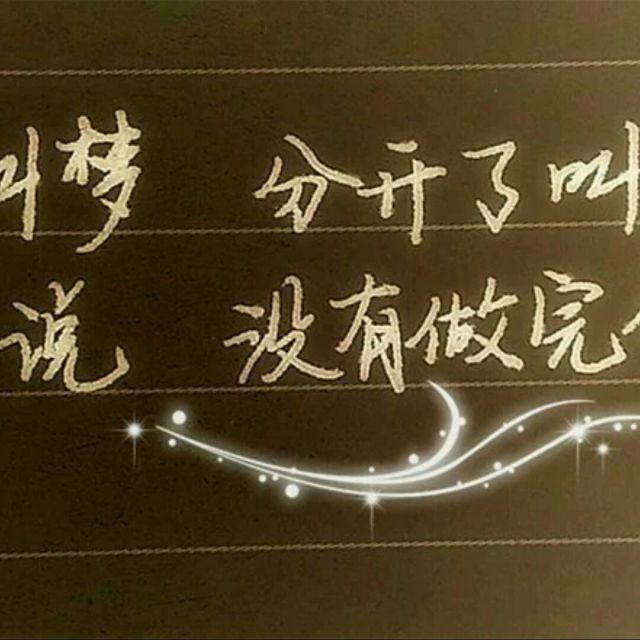 叫梦 分开了叫
说 没有做完